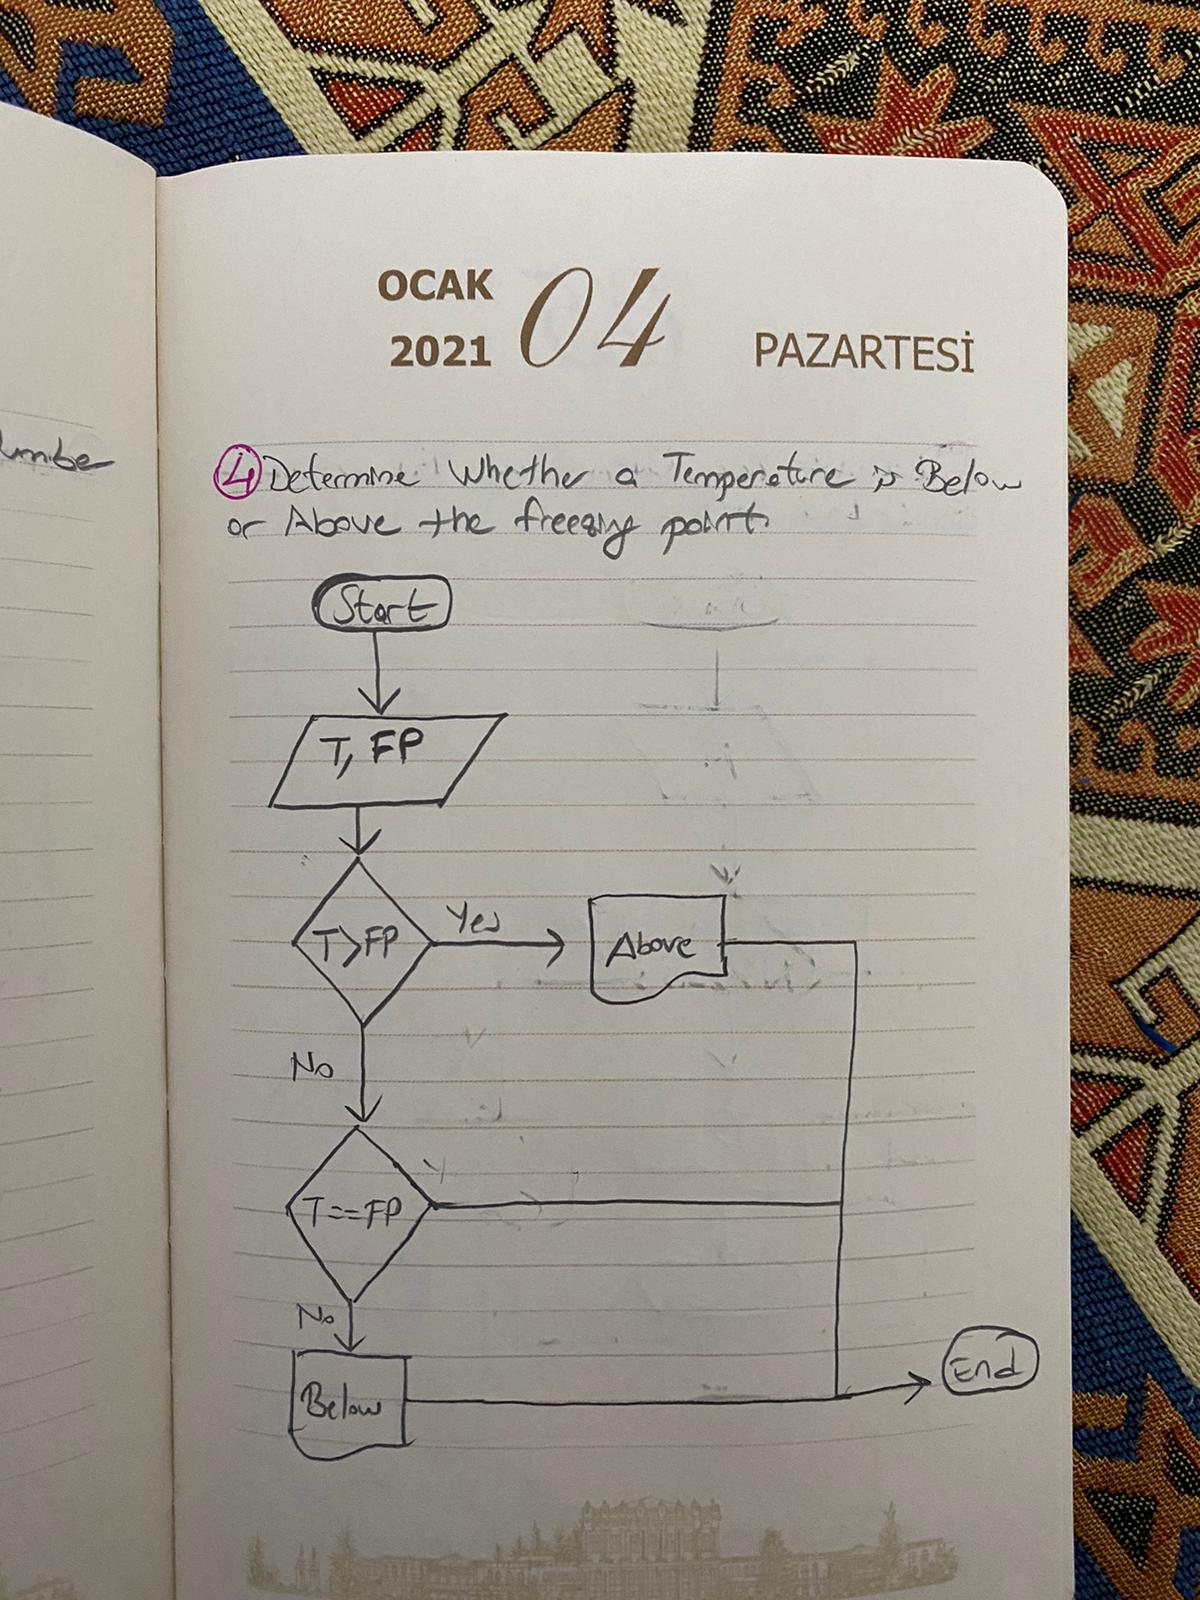 OCAK
2021
04
PAZARTESİ
umber
4 Determine Whether a Temperature is Below
or Above the freezing point.
Start
T, FP
T>FP
Yes
Above
No
T==FP
Y
No
Below
End